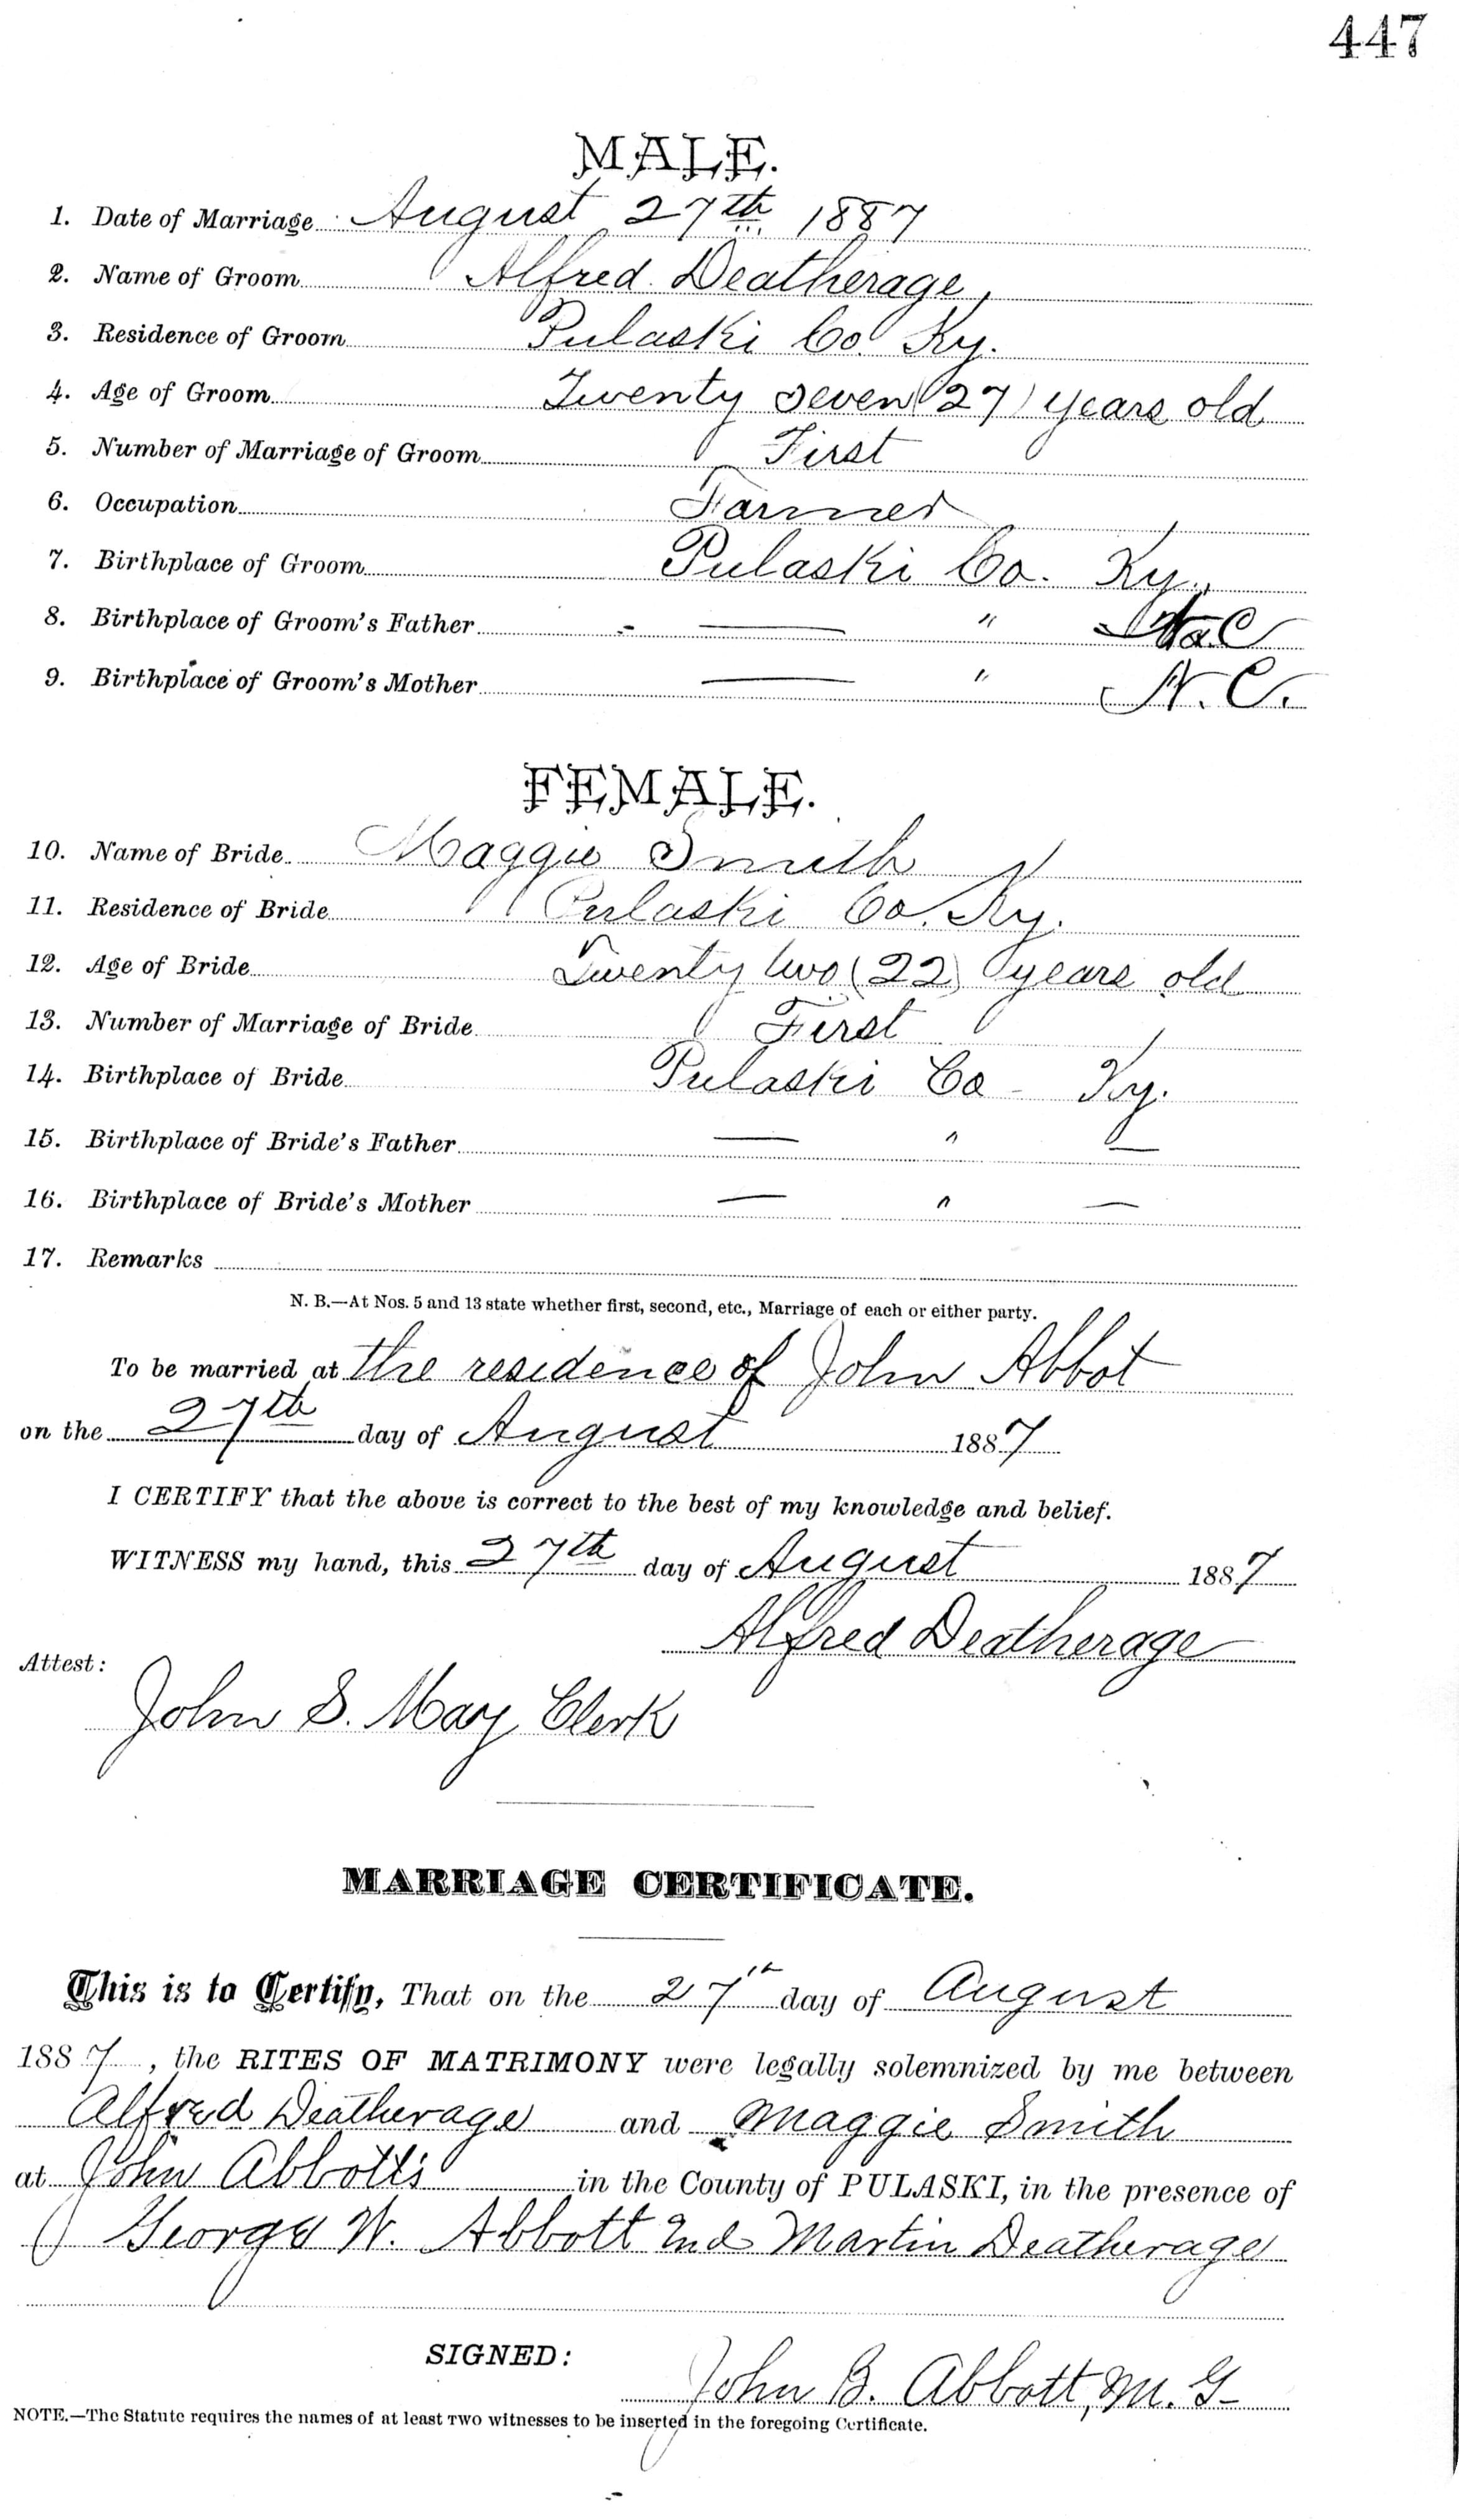 447
MALE.
1. Date of Marriage August 27th 1887
2. Name of Groom Alfred Deatherage,
3. Residence of Groom Pulaski Co. Ky.
4. Age of Groom Twenty seven (27) years old
5. Number of Marriage of Groom First
6. Occupation Farmer
7. Birthplace of Groom Pulaski Co. Ky.
8. Birthplace of Groom's Father — "
9. Birthplace of Groom's Mother — " N.C.
FEMALE.
10. Name of Bride Maggie Smith
11. Residence of Bride Pulaski Co. Ky.
12. Age of Bride Twenty two (22) years old
13. Number of Marriage of Bride First
14. Birthplace of Bride Pulaski Co - Ky.
15. Birthplace of Bride's Father — " —
16. Birthplace of Bride's Mother — " —
17. Remarks
N. B.—At Nos. 5 and 13 state whether first, second, etc., Marriage of each or either party.
To be married at the residence of John Abbot
on the 27th day of August 1887
I CERTIFY that the above is correct to the best of my knowledge and belief.
WITNESS my hand, this 27th day of August 1887
Alfred Deatherage
Attest:
John S. May Clerk
MARRIAGE CERTIFICATE.
This is to Certify, That on the 27th day of August
1887, the RITES OF MATRIMONY were legally solemnized by me between
Alfred Deatherage and Maggie Smith
at John Abbotts in the County of PULASKI, in the presence of
George W. Abbott and Martin Deatherage
SIGNED:
John B. Abbott, M. G-
NOTE.—The Statute requires the names of at least TWO witnesses to be inserted in the foregoing Certificate.